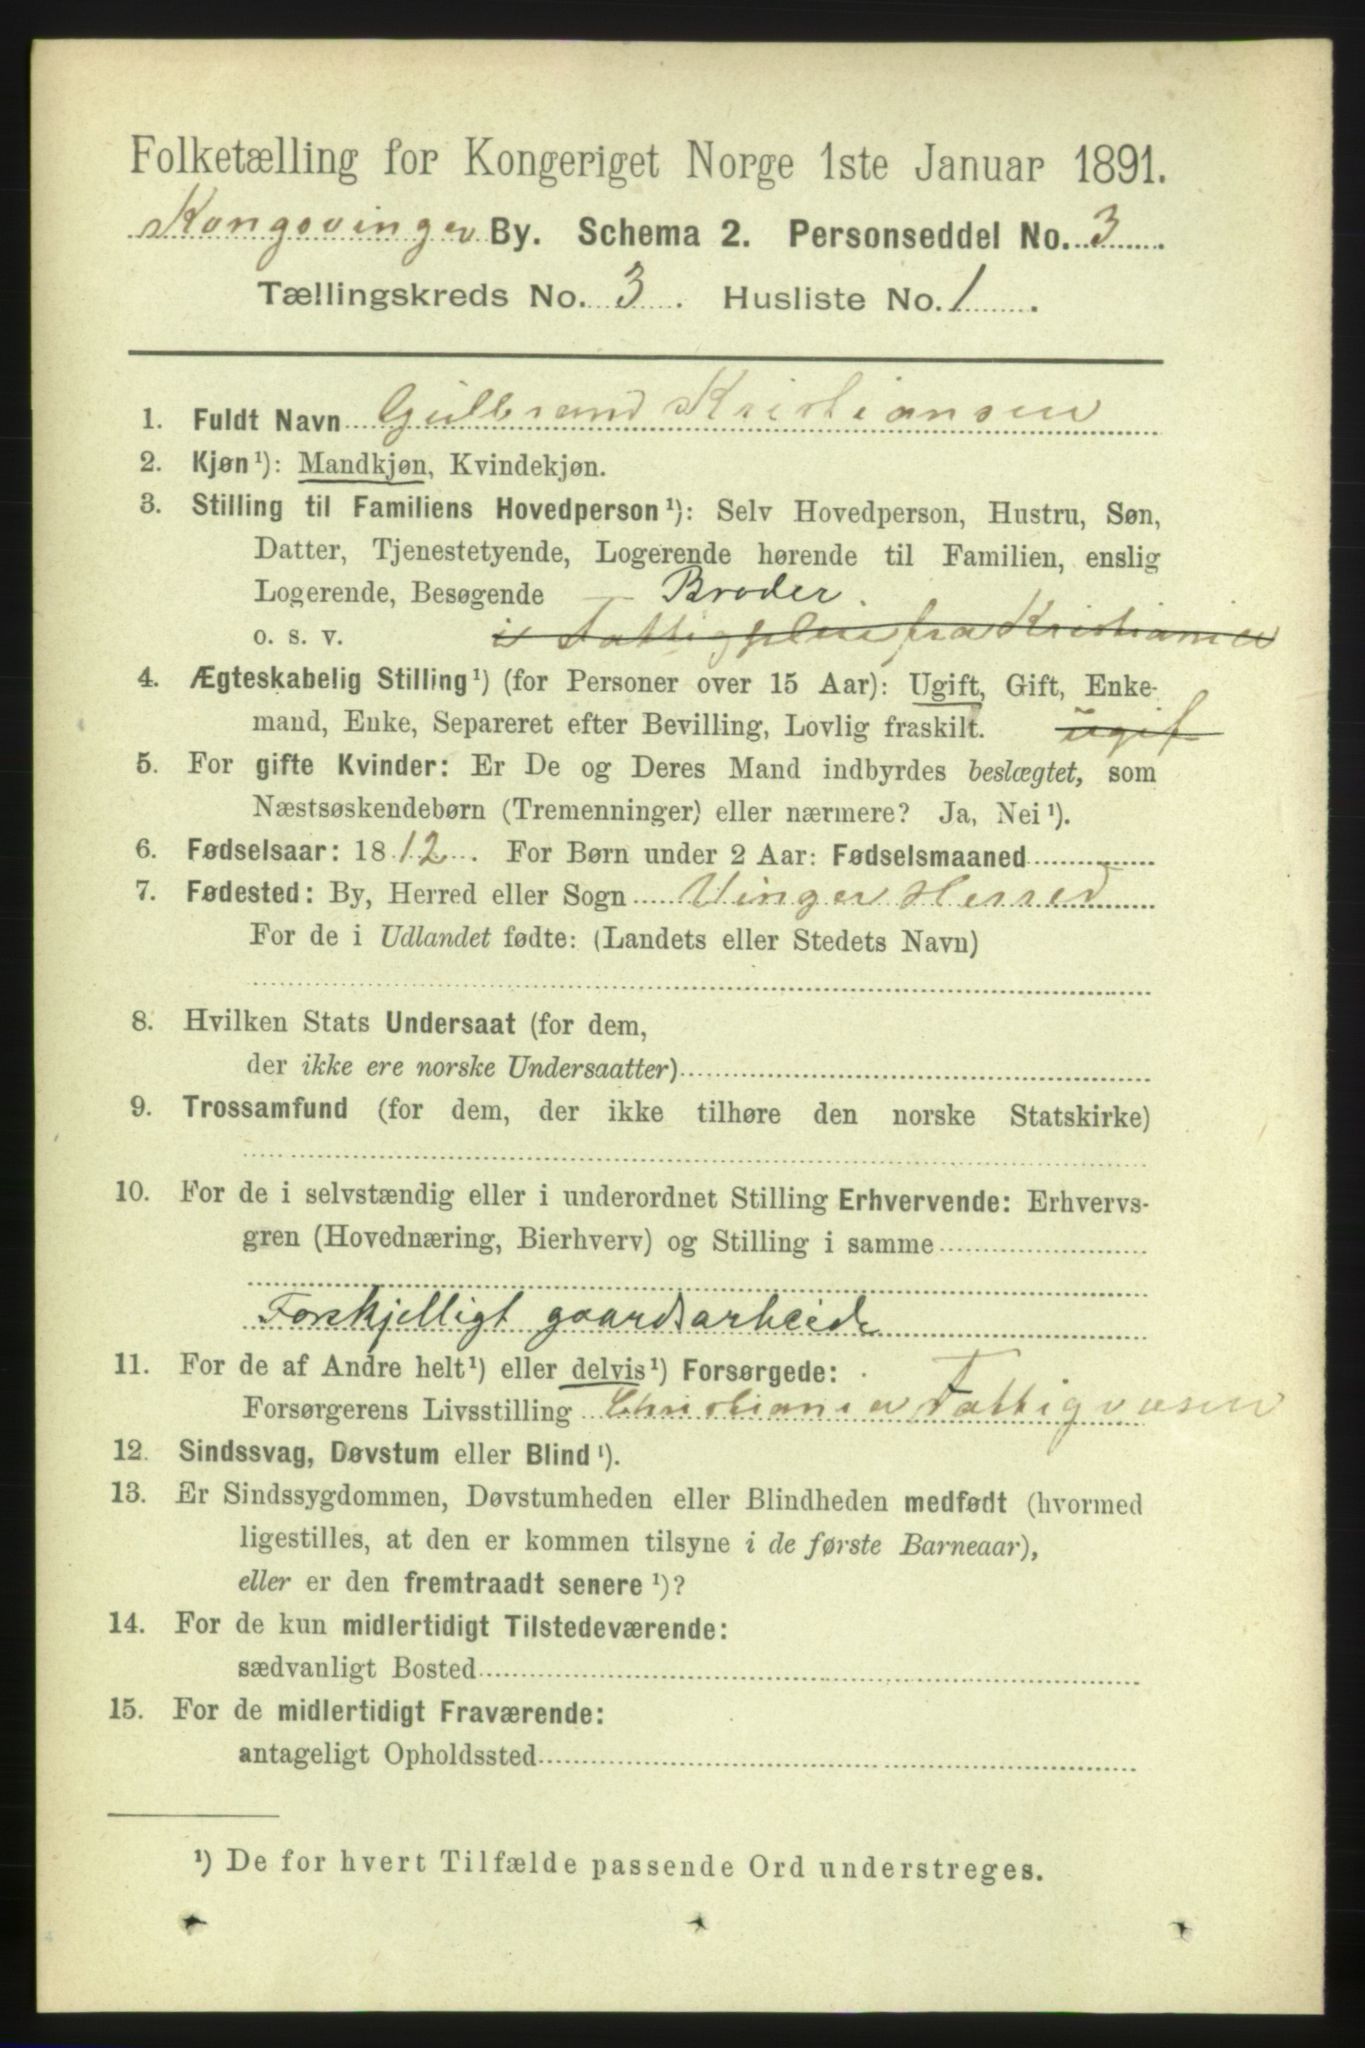 Folketælling for Kongeriget Norge 1ste Januar 1891.
Kongsvinger By. Schema 2. Personseddel No. 3
Tællingskreds No. 3. Husliste No. 1.
1. Fuldt Navn Gulbrand Kristiansen
2. Kjøn¹): Mandkjøn, Kvindekjøn.
3. Stilling til Familiens Hovedperson¹): Selv Hovedperson, Hustru, Søn,
Datter, Tjenestetyende, Logerende hørende til Familien, enslig
Logerende, Besøgende — Broder.
o. s. v. i Fattigpleie fra Kristiania
4. Ægteskabelig Stilling¹) (for Personer over 15 Aar): Ugift, Gift, Enke-
mand, Enke, Separeret efter Bevilling, Lovlig fraskilt. ugif
5. For gifte Kvinder: Er De og Deres Mand indbyrdes beslægtet, som
Næstsøskendebørn (Tremenninger) eller nærmere? Ja, Nei¹).
6. Fødselsaar: 1812. For Børn under 2 Aar: Fødselsmaaned
7. Fødested: By, Herred eller Sogn Vinger Herred
For de i Udlandet fødte: (Landets eller Stedets Navn)
8. Hvilken Stats Undersaat (for dem,
der ikke ere norske Undersaatter)
9. Trossamfund (for dem, der ikke tilhøre den norske Statskirke)
10. For de i selvstændig eller i underordnet Stilling Erhvervende: Erhvervs-
gren (Hovednæring, Bierhverv) og Stilling i samme
Forskjelligt gaardsarbeide
11. For de af Andre helt¹) eller delvis¹) Forsørgede:
Forsørgerens Livsstilling Christiania Fattigvæsen
12. Sindssvag, Døvstum eller Blind¹).
13. Er Sindssygdommen, Døvstumheden eller Blindheden medfødt (hvormed
ligestilles, at den er kommen tilsyne i de første Barneaar),
eller er den fremtraadt senere¹)?
14. For de kun midlertidigt Tilstedeværende:
sædvanligt Bosted
15. For de midlertidigt Fraværende:
antageligt Opholdssted
¹) De for hvert Tilfælde passende Ord understreges.